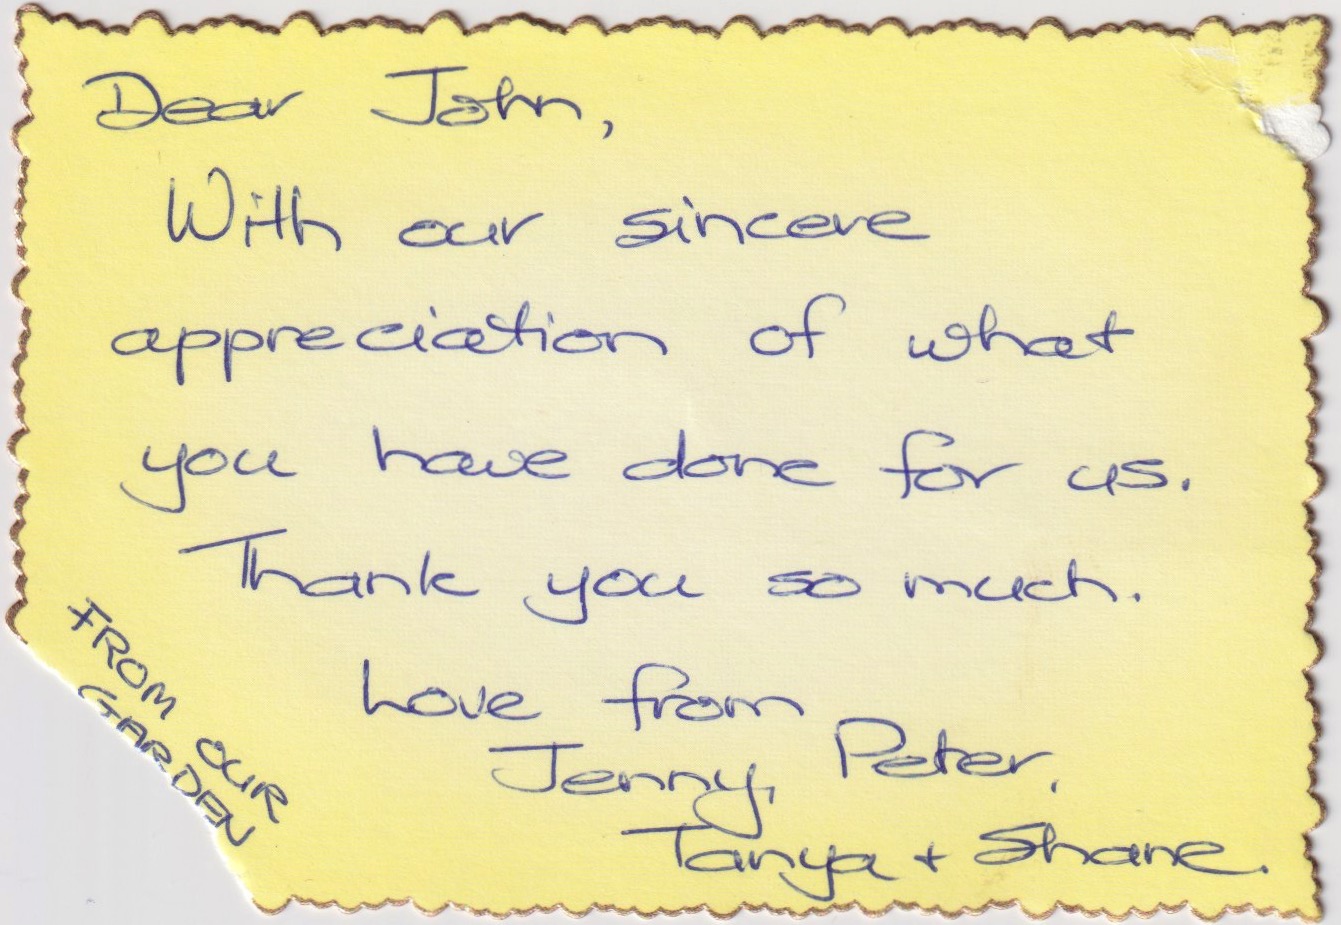 Dear John,
With our sincere
appreciation of what
you have done for us.
Thank you so much.
Love from
Jenny, Peter,
Tanya + Shane.
FROM OUR
GARDEN